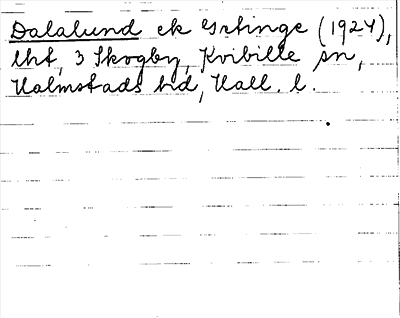 Dalalund ek Grtinge (1924),
lht, 3 Skogby, Kvibille sn,
Halmstads hd, Hall. l.